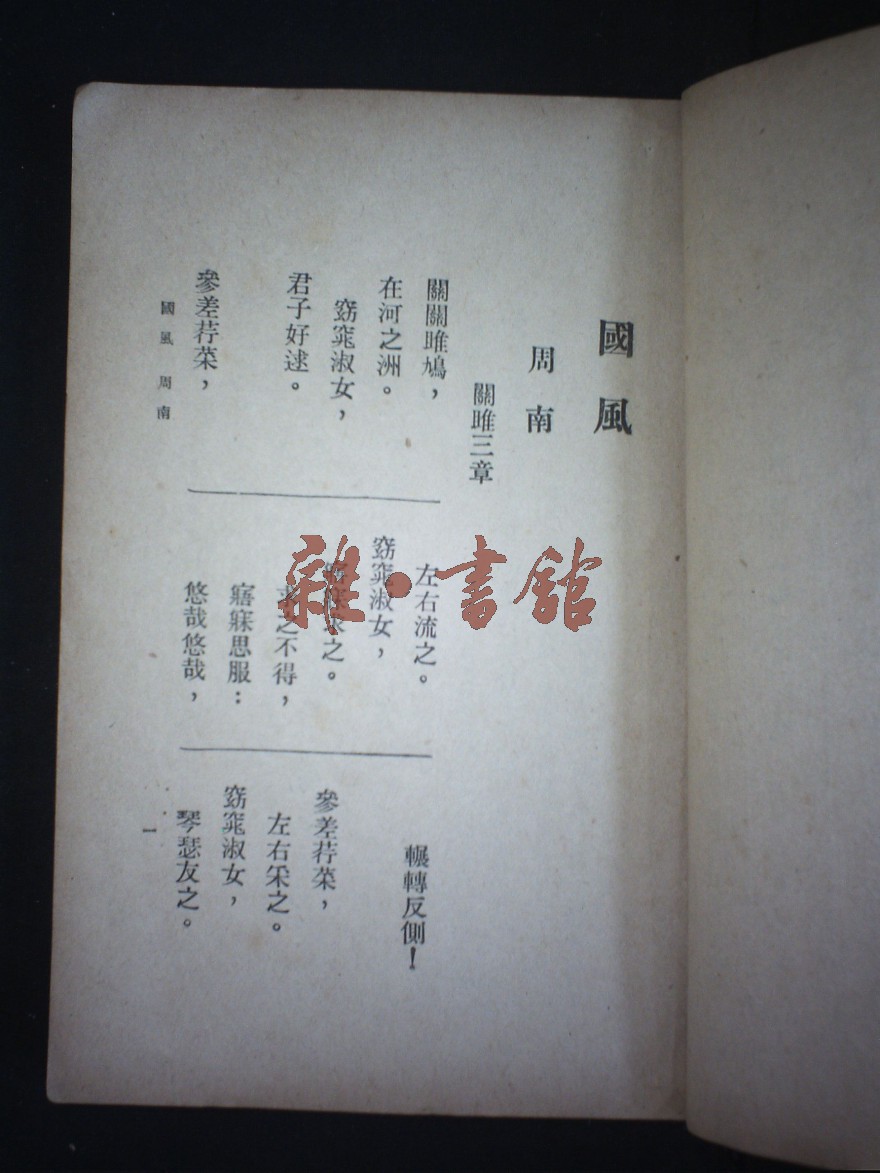 國風
周南
關雎三章
關關雎鳩，
在河之洲。
窈窕淑女，
君子好逑。
參差荇菜，
左右流之。
窈窕淑女，
寤寐求之。
求之不得，
寤寐思服：
悠哉悠哉，
輾轉反側！
參差荇菜，
左右采之。
窈窕淑女，
琴瑟友之。
國風 周南
一
雜·書館